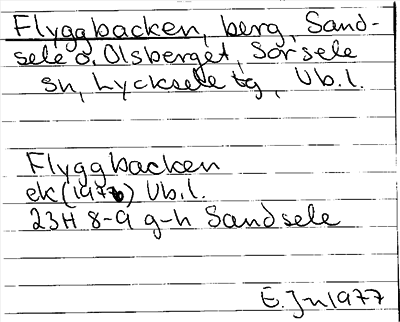 Flyggbacken, berg, Sand-
sele o. Olsberget, Sorsele
sn, Lycksele tg, Vb.l.
Flyggbacken
ek (1976) Vb.l.
23H 8-9 g-h Sandsele
E. Jn 1977